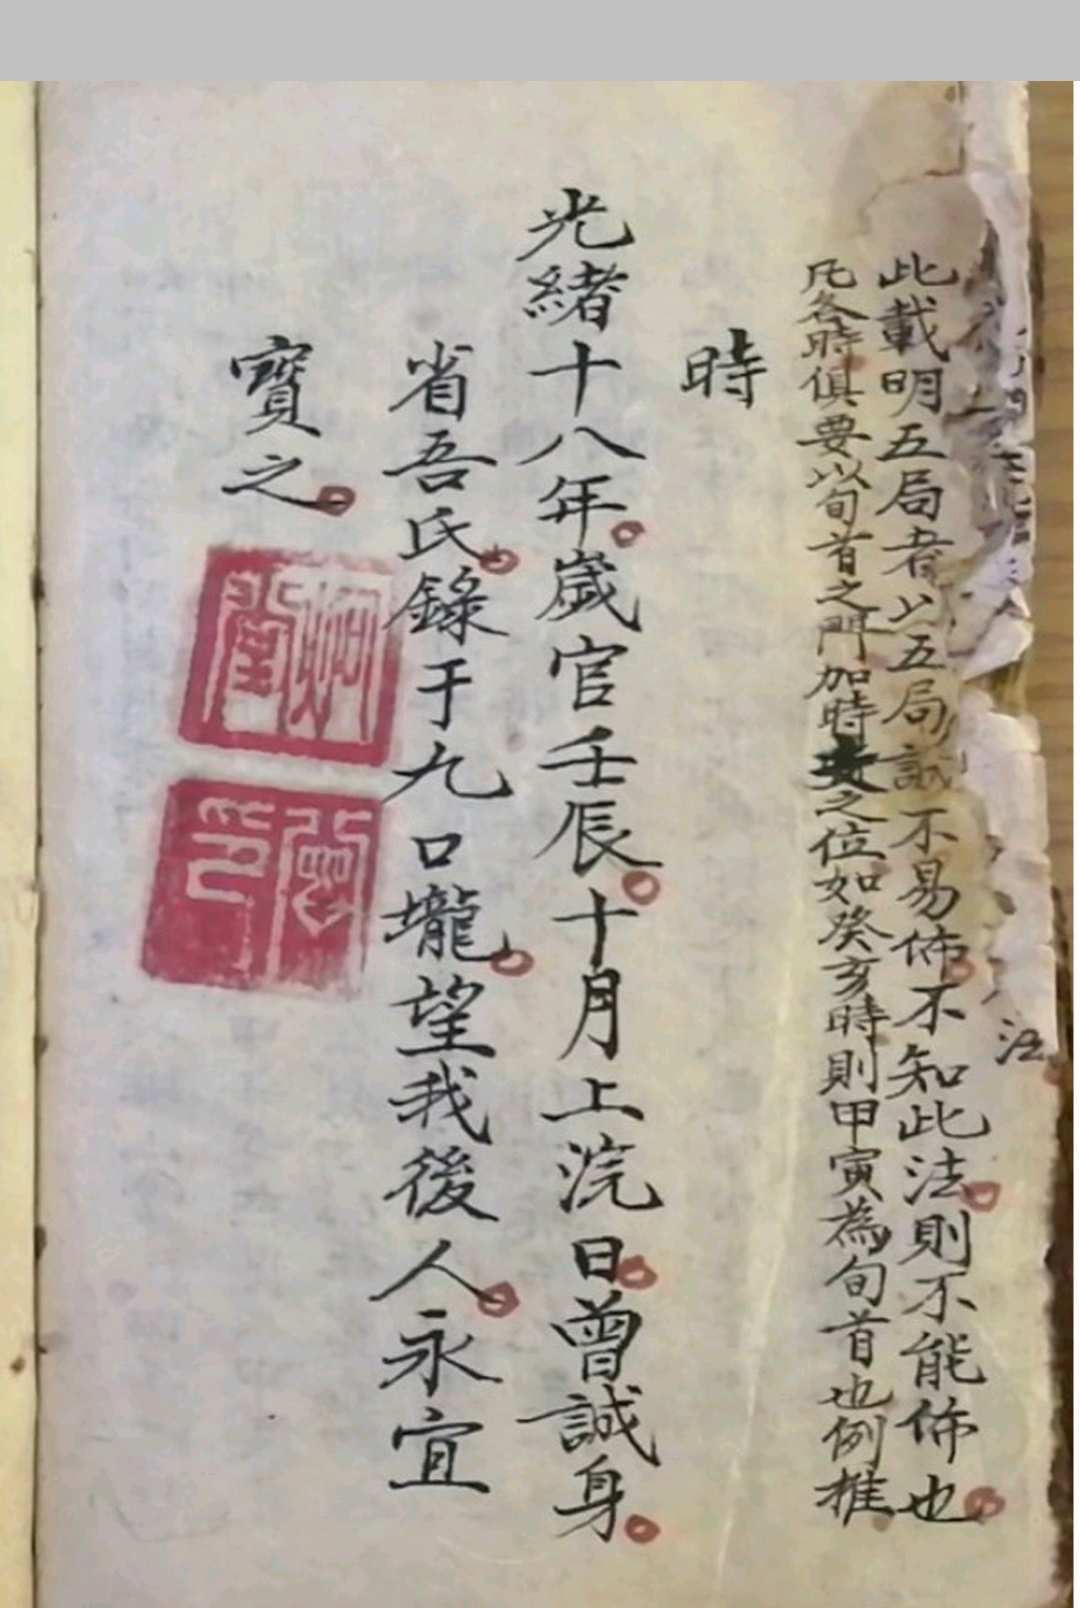 法
此載明五局者以五局誠不易佈不知此法則不能佈也
凡各時俱要以旬首之門加時支之位如癸亥時則甲寅為旬首也例推
時
光緒十八年歲官壬辰十月上浣日曾誠身
省吾氏錄于九口壠望我後人永宜
寶之